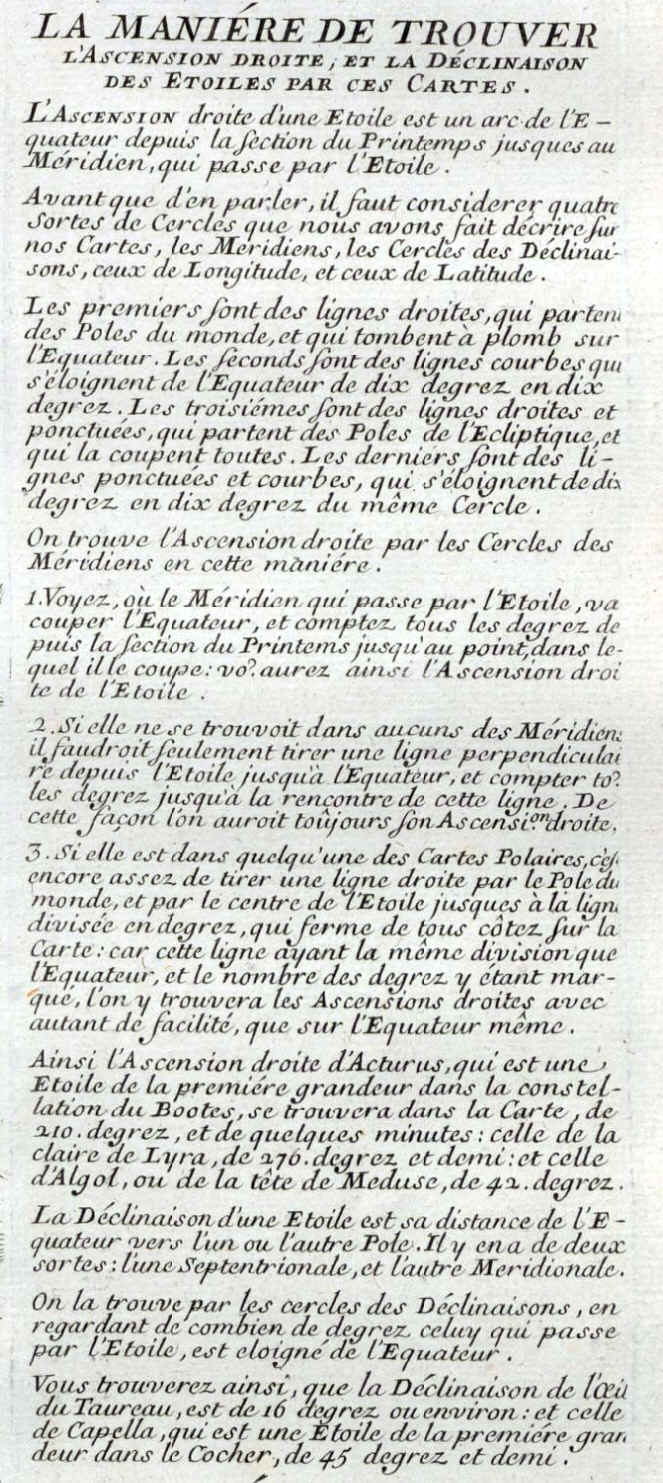 LA MANIÉRE DE TROUVER
L'ASCENSION DROITE, ET LA DÉCLINAISON
DES ETOILES PAR CES CARTES.
L'ASCENSION droite d'une Etoile est un arc de l'E-
quateur depuis la section du Printemps jusques au
Méridien, qui passe par l'Etoile.
Avant que d'en parler, il faut considerer quatre
sortes de Cercles que nous avons fait décrire sur
nos Cartes, les Méridiens, les Cercles des Déclinai-
sons, ceux de Longitude, et ceux de Latitude.
Les premiers sont des lignes droites, qui partent
des Poles du monde, et qui tombent à plomb sur
l'Equateur. Les seconds sont des lignes courbes qui
s'éloignent de l'Equateur de dix degrez en dix
degrez. Les troisiémes sont des lignes droites et
ponctuées, qui partent des Poles de l'Ecliptique, et
qui la coupent toutes. Les derniers sont des li-
gnes ponctuées et courbes, qui s'éloignent de dix
degrez en dix degrez du même Cercle.
On trouve l'Ascension droite par les Cercles des
Méridiens en cette maniére.
1. Voyez, où le Méridien qui passe par l'Etoile, va
couper l'Equateur, et comptez tous les degrez de
puis la section du Printems jusqu'au point, dans le-
quel il le coupe: vo.? aurez ainsi l'Ascension droi
te de l'Etoile.
2. Si elle ne se trouvoit dans aucuns des Méridiens
il faudroit seulement tirer une ligne perpendiculai
re depuis l'Etoile jusqu'à l'Equateur, et compter to.?
les degrez jusqu'à la rencontre de cette ligne. De
cette façon l'on auroit toûjours son Ascensi.on droite.
3. Si elle est dans quelqu'une des Cartes Polaires, c'est
encore assez de tirer une ligne droite par le Pole du
monde, et par le centre de l'Etoile jusques à la ligne
divisée en degrez, qui ferme de tous côtez sur la
Carte: car cette ligne ayant la même division que
l'Equateur, et le nombre des degrez y étant mar-
qué, l'on y trouvera les Ascensions droites avec
autant de facilité, que sur l'Equateur même.
Ainsi l'Ascension droite d'Acturus, qui est une
Etoile de la premiére grandeur dans la constel-
lation du Bootes, se trouvera dans la Carte, de
210. degrez, et de quelques minutes: celle de la
claire de Lyra, de 276. degrez et demi: et celle
d'Algol, ou de la tête de Meduse, de 42. degrez.
La Déclinaison d'une Etoile est sa distance de l'E-
quateur vers l'un ou l'autre Pole. Il y en a de deux
sortes: l'une Septentrionale, et l'autre Meridionale.
On la trouve par les cercles des Déclinaisons, en
regardant de combien de degrez celuy qui passe
par l'Etoile, est eloigné de l'Equateur.
Vous trouverez ainsi, que la Déclinaison de l'œil
du Taureau, est de 16 degrez ou environ: et celle
de Capella, qui est une Etoile de la premiére gran
deur dans le Cocher, de 45 degrez et demi.